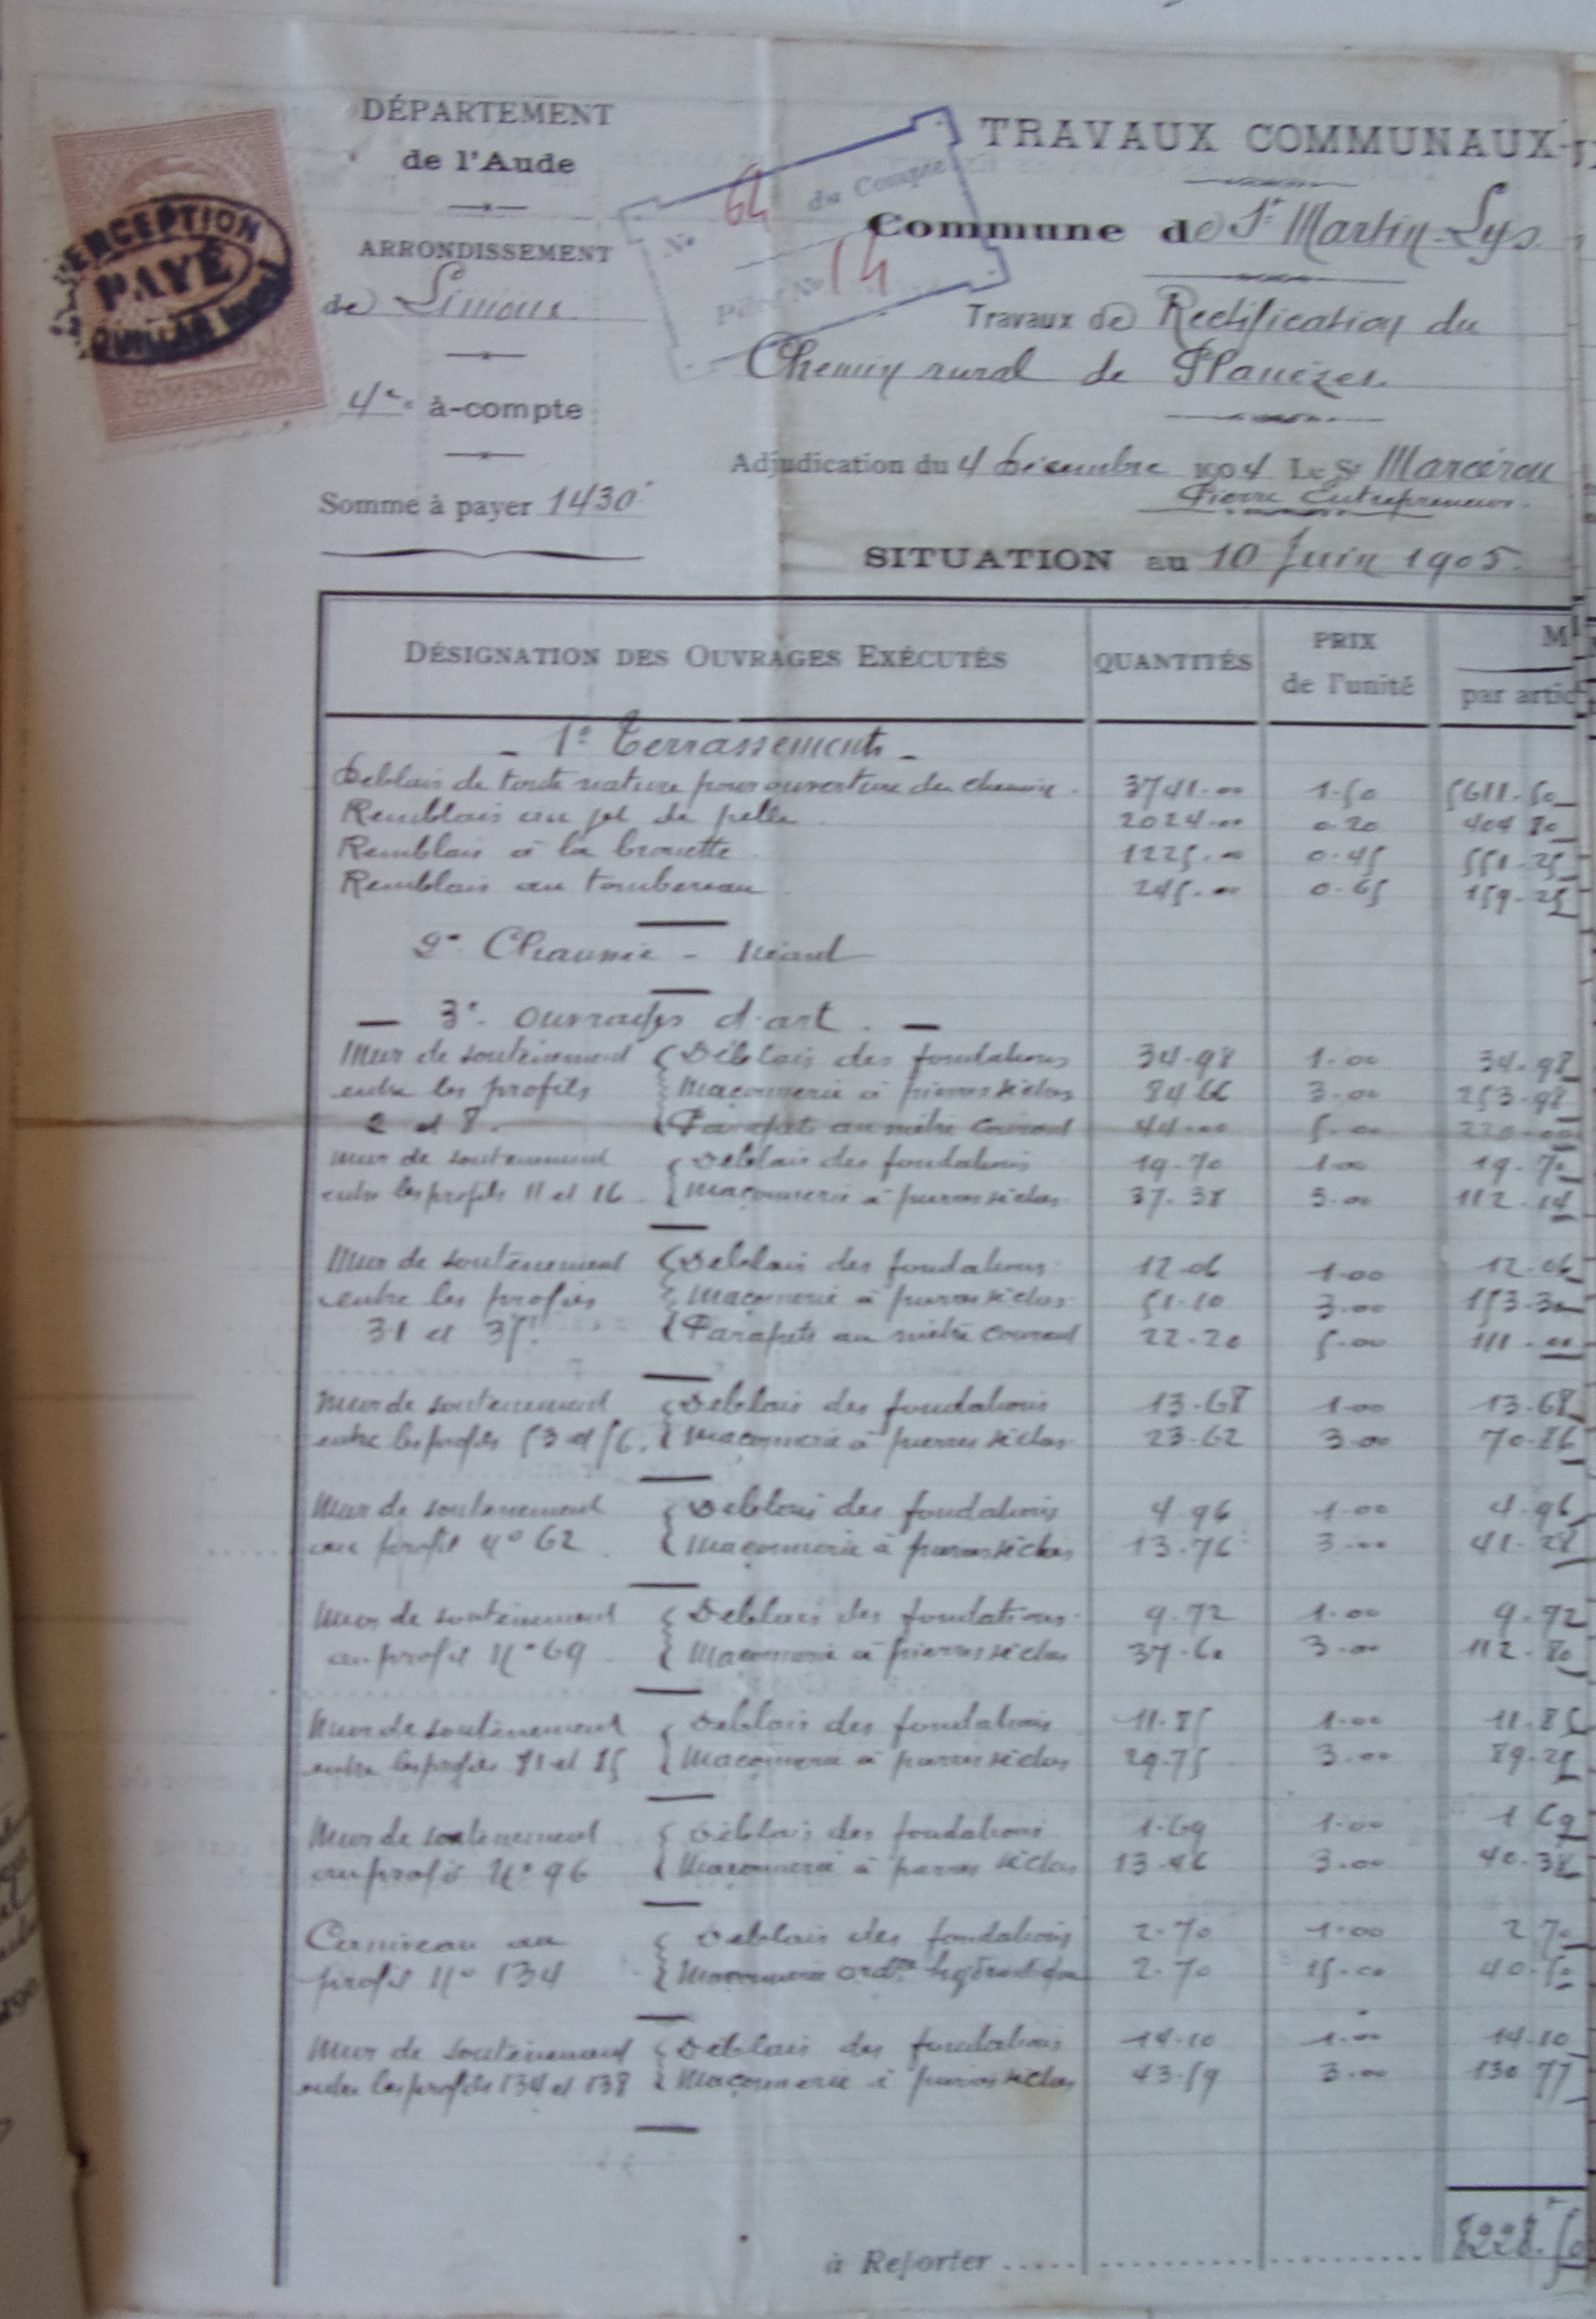 DÉPARTEMENT
de l'Aude
ARRONDISSEMENT
de Limoux
4e à-compte
Somme à payer 1430f
PERCEPTION
PAYÉ
QUILLAN
DIMENSION
No 64 du Compte
Pièce No 14
TRAVAUX COMMUNAUX
Commune de St Martin-Lys
Travaux de Rectification du
Chemin rural de Planèzes.
Adjudication du 4 Décembre 1904 Le Sr Marcérou
Pierre Entrepreneur.
SITUATION au 10 Juin 1905.
DÉSIGNATION DES OUVRAGES EXÉCUTÉS QUANTITÉS PRIX de l'unité M
par artic
- 1° Terrassements -
Déblais de toute nature pour ouverture du chemin. 3741.00 1.50 5611.50
Remblais au jet de pelle 2024.00 0.20 404 80
Remblais à la brouette 1225.00 0.45 551.25
Remblais au tombereau 245.00 0.65 159.25
2° Chaussée - Néant
- 3°. Ouvrages d'art. -
Mur de soutènement { Déblais des fondations 34.98 1.00 34.98
entre les profils { Maçonnerie à pierres sèches 84 66 3.00 253.98
2 et 8. { Parapets au mètre courant 44.00 5.00 220.00
Mur de soutènement { Déblais des fondations 19.70 1.00 19.70
entre les profils 11 et 16. { Maçonnerie à pierres sèches 37.38 3.00 112.14
Mur de soutènement { Déblais des fondations 12.06 1.00 12.06
entre les profils { Maçonnerie à pierres sèches 51.10 3.00 153.30
31 et 35. { Parapets au mètre courant 22.20 5.00 111.00
Mur de soutènement { Déblais des fondations 13.68 1.00 13.68
entre les profils 53 et 56. { Maçonnerie à pierres sèches 23.62 3.00 70.86
Mur de soutènement { Déblais des fondations 4.96 1.00 4.96
au profil n° 62 { Maçonnerie à pierres sèches 13.76 3.00 41.28
Mur de soutènement { Déblais des fondations 9.72 1.00 9.72
au profil N° 69 { Maçonnerie à pierres sèches 37.60 3.00 112.80
Mur de soutènement { Déblais des fondations 11.85 1.00 11.85
entre les profils 81 et 85 { Maçonnerie à pierres sèches 29.75 3.00 89.25
Mur de soutènement { Déblais des fondations 1.69 1.00 1 69
au profil N° 96 { Maçonnerie à pierres sèches 13.46 3.00 40.38
Caniveau au { Déblais des fondations 2.70 1.00 2 70
profil N° 134 { Maçonnerie ordre 2.70 15.00 40.50
Mur de soutènement { Déblais des fondations 14.10 1.00 14.10
entre les profils 134 et 138 { Maçonnerie à pierres sèches 43.59 3.00 130 77
à Reporter ..... 8228.50